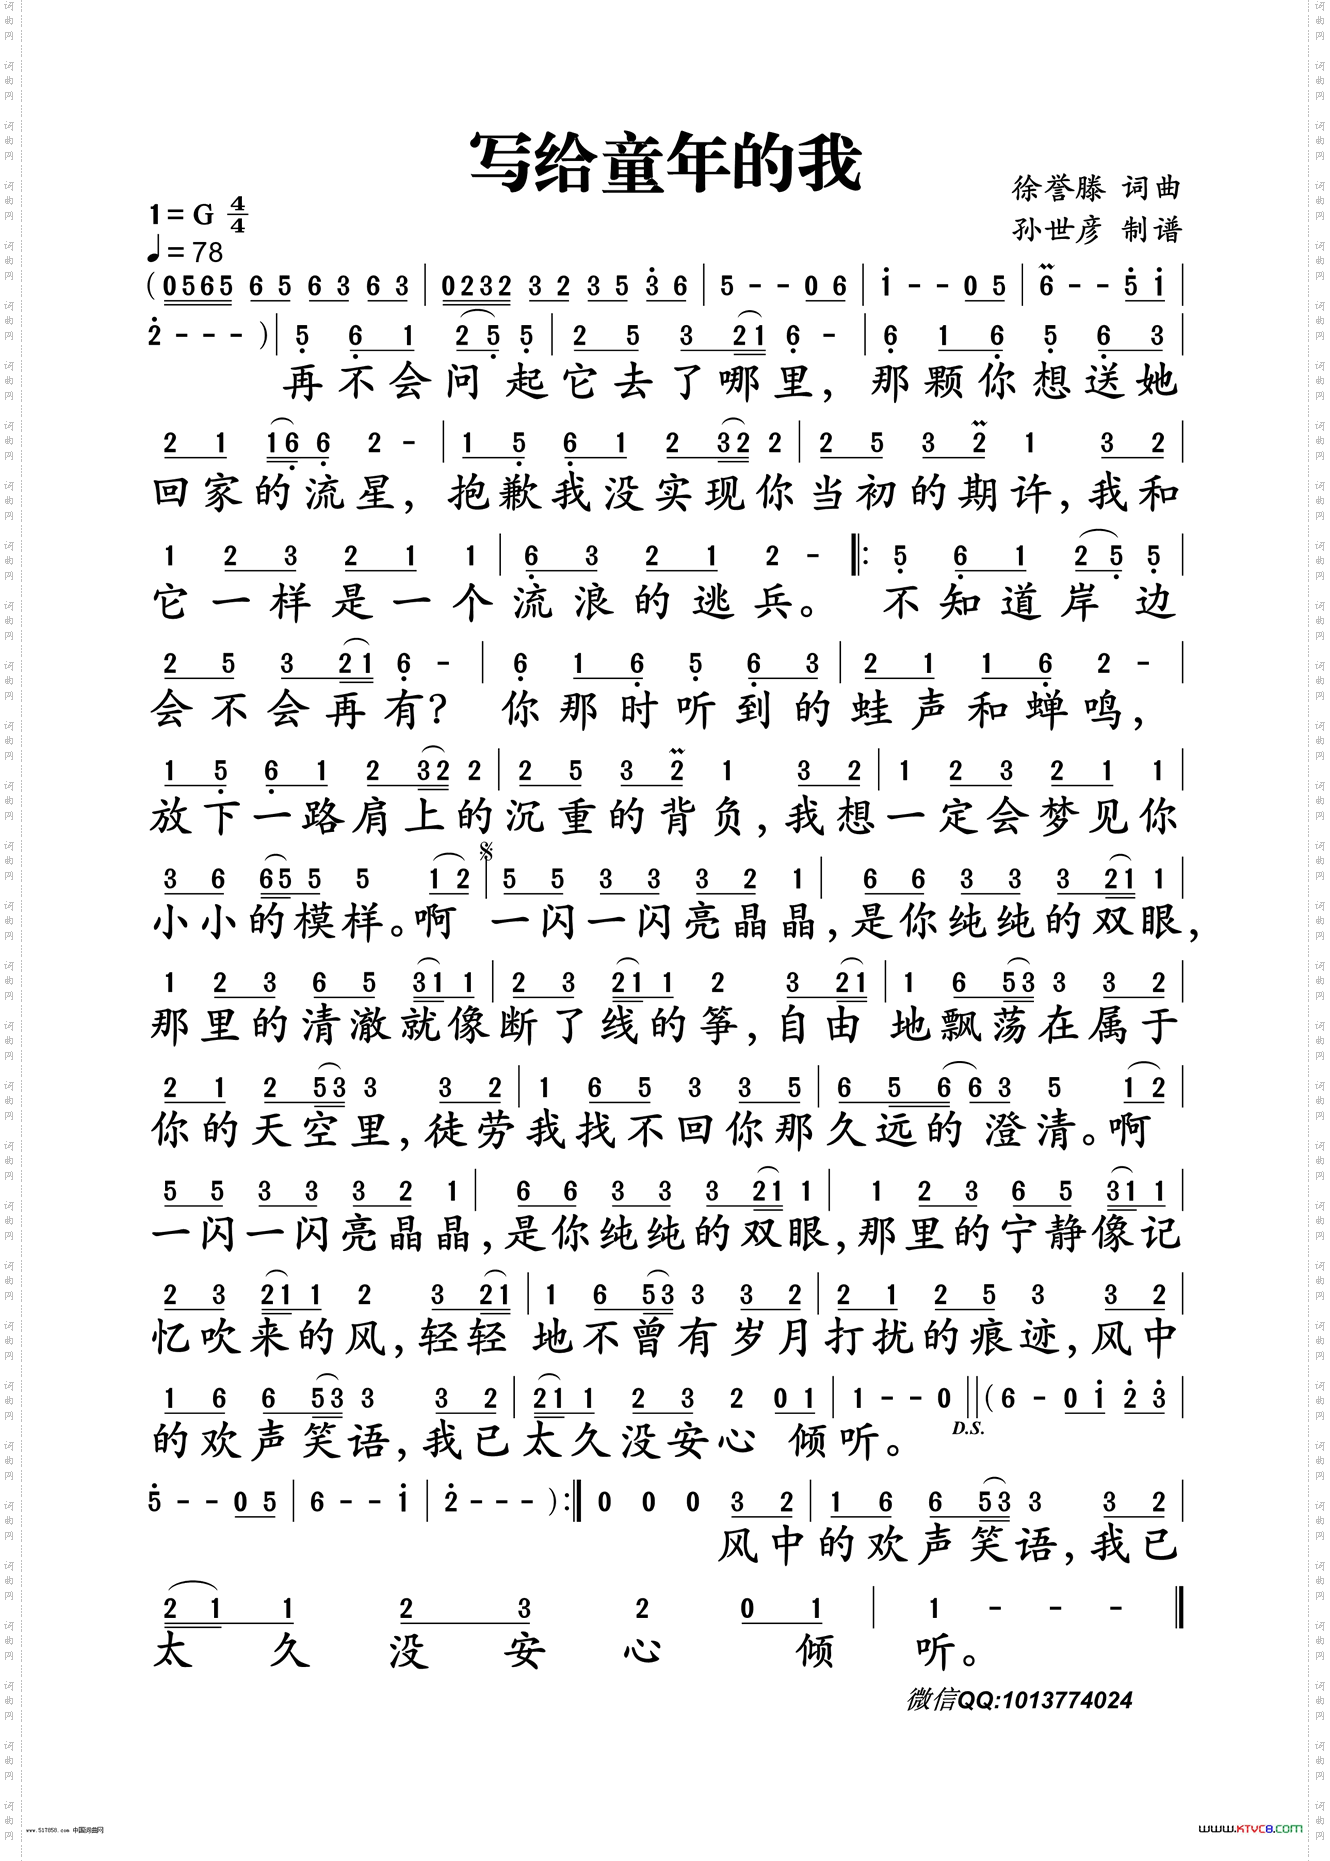 写给童年的我
徐誉滕 词曲
孙世彦 制谱
1=G 4/4
♩=78
(0565 65 63 63 | 0232 32 35 36 | 5 - - 06 | 1 - - 05 | 6 - - 51 |
2 - - - ) | 5 61 25 5 | 25 321 6 - | 6 16 5 63 |
再不会问起它去了哪里，那颗你想送她
21 166 2 - | 15 61 232 2 | 25 32 1 32 |
回家的流星，抱歉我没实现你当初的期许，我和
1 23 21 1 | 63 21 2 - ‖: 5 61 25 5 |
它一样是一个流浪的逃兵。 不知道岸边
25 321 6 - | 6 16 5 63 | 21 16 2 - |
会不会再有？ 你那时听到的蛙声和蝉鸣，
15 61 232 2 | 25 32 1 32 | 1 23 21 1 |
放下一路肩上的沉重的背负，我想一定会梦见你
36 655 5 12 | 55 33 32 1 | 66 33 321 1 |
小小的模样。啊 一闪一闪亮晶晶，是你纯纯的双眼，
1 23 65 311 | 23 211 2 321 | 1 653 3 32 |
那里的清澈就像断了线的筝，自由 地飘荡在属于
21 253 3 32 | 1 65 3 35 | 656 63 5 12 |
你的天空里，徒劳我找不回你那久远的 澄清。啊
55 33 32 1 | 66 33 321 1 | 1 23 65 311 |
一闪一闪亮晶晶，是你纯纯的双眼，那里的宁静像记
23 211 2 321 | 1 653 3 32 | 21 25 3 32 |
忆吹来的风，轻轻 地不曾有岁月打扰的痕迹，风中
16 653 3 32 | 211 23 2 01 | 1 - - 0 ‖ (6 - 01 23 |
D.S.
的欢声笑语，我已太久没安心 倾听。
5 - - 05 | 6 - - 1 | 2 - - - ) :‖ 0 0 0 32 | 16 653 3 32 |
风中的欢声笑语，我已
211 23 2 01 | 1 - - - ‖
太久没安心 倾听。
微信QQ:1013774024
www.517858.com 中国词曲网
www.KTVC8.com